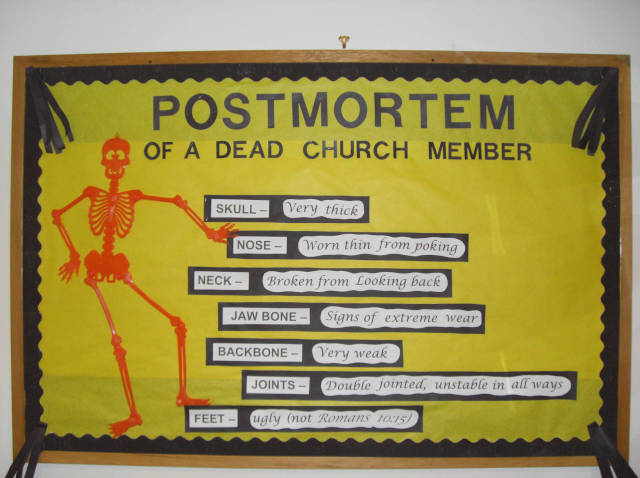 POSTMORTEM
OF A DEAD CHURCH MEMBER
SKULL – Very thick
NOSE – Worn thin from poking
NECK – Broken from Looking back
JAW BONE – Signs of extreme wear
BACKBONE – Very weak
JOINTS – Double jointed, unstable in all ways
FEET – ugly (not Romans 10:15)